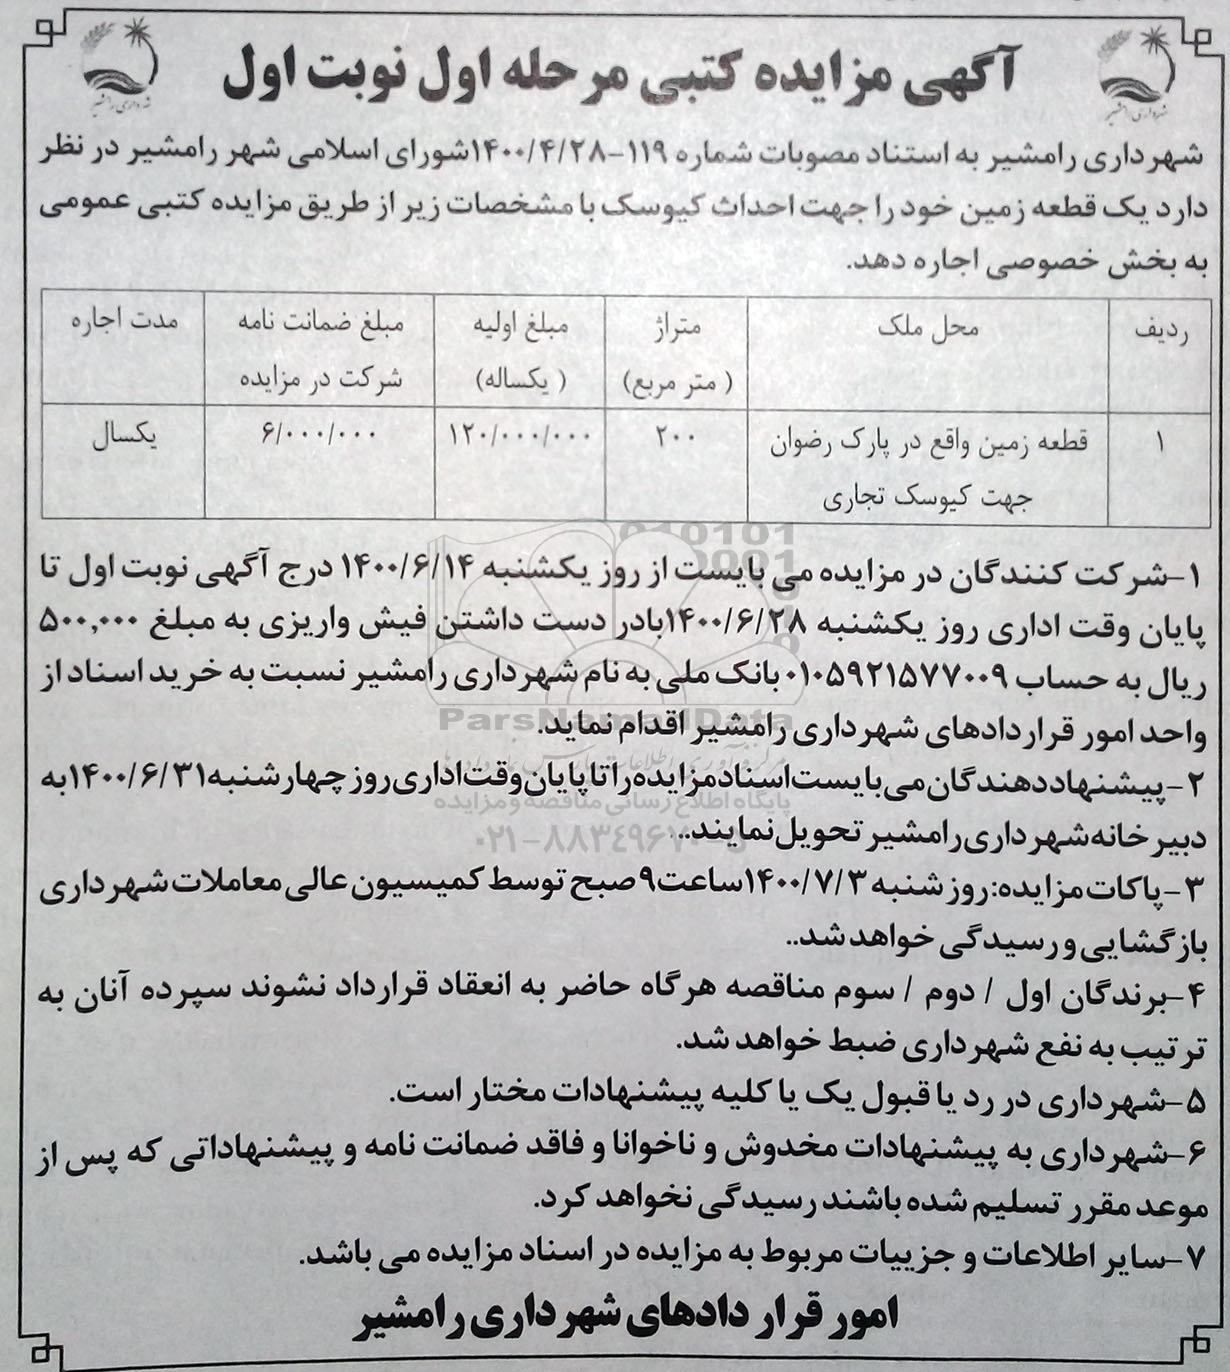 آگهی مزایده کتبی مرحله اول نوبت اول
شهرداری رامشیر
شهرداری رامشیر
شهرداری رامشیر به استناد مصوبات شماره ۱۱۹-۱۴۰۰/۴/۲۸شورای اسلامی شهر رامشیر در نظر
دارد یک قطعه زمین خود را جهت احداث کیوسک با مشخصات زیر از طریق مزایده کتبی عمومی
به بخش خصوصی اجاره دهد.
ردیف محل ملک متراژ مبلغ اولیه مبلغ ضمانت نامه مدت اجاره
( متر مربع) ( یکساله) شرکت در مزایده
۱ قطعه زمین واقع در پارک رضوان ۲۰۰ ۱۲۰/۰۰۰/۰۰۰ ۶/۰۰۰/۰۰۰ یکسال
جهت کیوسک تجاری
۱-شرکت کنندگان در مزایده می بایست از روز یکشنبه ۱۴۰۰/۶/۱۴ درج آگهی نوبت اول تا
پایان وقت اداری روز یکشنبه ۱۴۰۰/۶/۲۸بادر دست داشتن فیش واریزی به مبلغ ۵۰۰,۰۰۰
ریال به حساب ۰۱۰۵۹۲۱۵۷۷۰۰۹ بانک ملی به نام شهرداری رامشیر نسبت به خرید اسناد از
واحد امور قراردادهای شهرداری رامشیر اقدام نماید.
ParsNamadData
۲-پیشنهاد دهندگان می بایست اسناد مزایده را تا پایان وقت اداری روز چهارشنبه ۱۴۰۰/۶/۳۱به
پایگاه اطلاع رسانی مناقصه و مزایده
دبیر خانه شهرداری رامشیر تحویل نمایند..
۰۲۱-۸۸۳۴۹۶۷۰-۵
۳-پاکات مزایده: روز شنبه ۱۴۰۰/۷/۳ساعت ۹ صبح توسط کمیسیون عالی معاملات شهرداری
بازگشایی و رسیدگی خواهد شد..
۴-برندگان اول / دوم / سوم مناقصه هرگاه حاضر به انعقاد قرارداد نشوند سپرده آنان به
ترتیب به نفع شهرداری ضبط خواهد شد.
۵-شهرداری در رد یا قبول یک یا کلیه پیشنهادات مختار است.
۶-شهرداری به پیشنهادات مخدوش و ناخوانا و فاقد ضمانت نامه و پیشنهاداتی که پس از
موعد مقرر تسلیم شده باشند رسیدگی نخواهد کرد.
۷-سایر اطلاعات و جزییات مربوط به مزایده در اسناد مزایده می باشد.
امور قرار دادهای شهرداری رامشیر